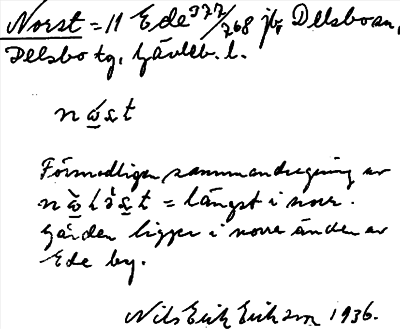 Norst = 11 Ede 377/768 jb, Delsbo sn,
Delsbo tg, Gävleb. l.
Förmodligen sammandragning av
= längst i norr.
Gården ligger i norra änden av
Ede by.
Nils Erik Erikson 1936.